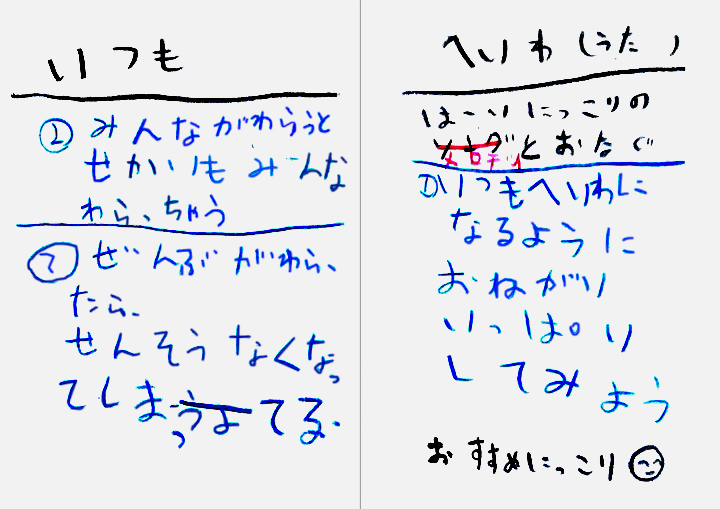 へいわ(うた)
はーいにっこりの
メロディ
とおなじ
①いつもへいわに
なるように
おねがい
いっぱい
してみよう
おすすめにっこり
いつも
②みんながわらうと
せかいもみーんな
わらっちゃう
③ぜんぶがわらっ
たら、
せんそうなくなっ
てしまってる。